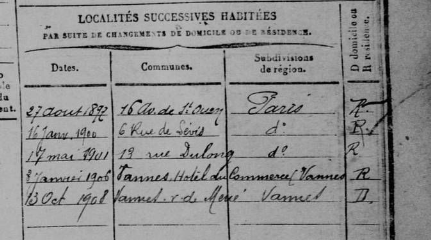 LOCALITÉS SUCCESSIVES HABITÉES
PAR SUITE DE CHANGEMENTS DE DOMICILE OU DE RÉSIDENCE.
Dates. Communes. Subdivisions de région. D domicile ou R résidence.
27 aout 1892 16 Av. de St Ouen Paris R
16 Janv. 1900 6 Rue de Lévis do R
17 mai 1901 19 rue Dulong do R
Janvier 1906 Vannes. Hotel du Commerce Vannes R
13 Oct 1908 Vannes. r. de Vannes D